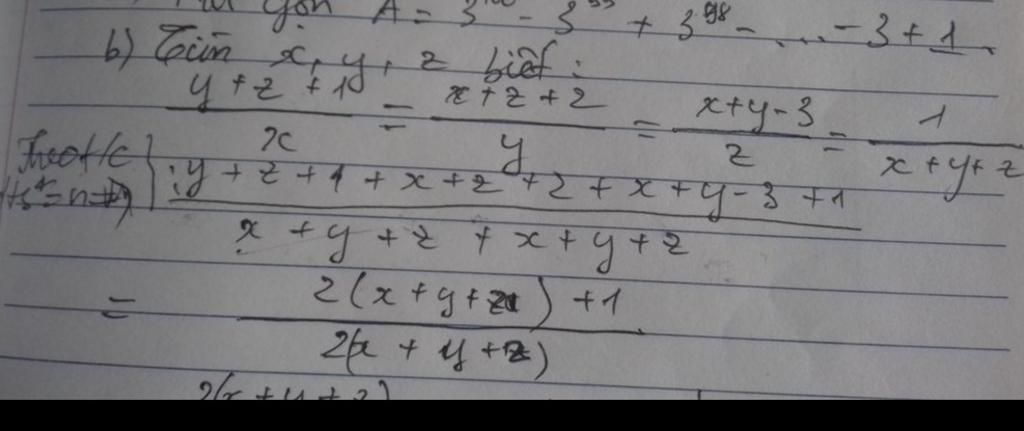 gọn A = 3^100 - 3^99 + 3^98 - .... - 3 + 1.
b) Tìm x, y, z biết:
(y + z + 1)/x = (x + z + 2)/y = (x + y - 3)/z = 1/(x + y + z)
Theo t/c
: (y + z + 1 + x + z + 2 + x + y - 3 + 1)/(x + y + z + x + y + z)
= (2(x + y + z) + 1)/(2(x + y + z))
2(x + y + z)